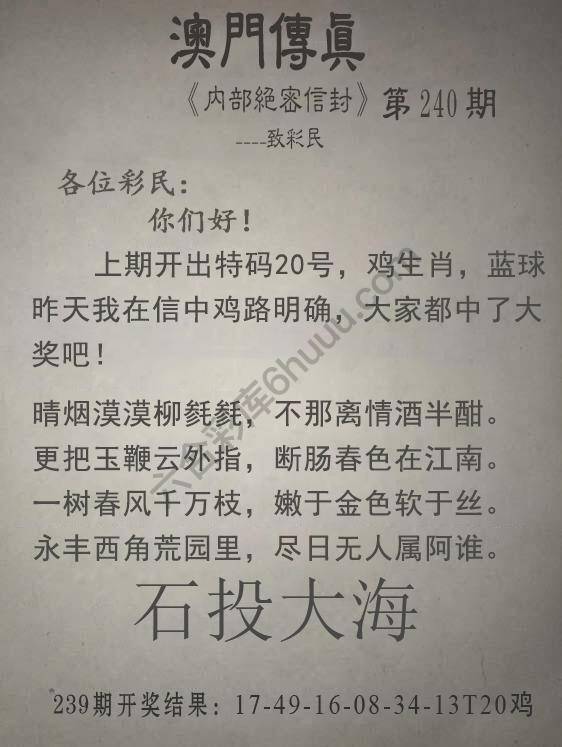 澳門傳眞
《内部絕密信封》第240期
----致彩民
各位彩民：
你们好！
上期开出特码20号，鸡生肖，蓝球
昨天我在信中鸡路明确，大家都中了大
奖吧！
晴烟漠漠柳毵毵，不那离情酒半酣。
更把玉鞭云外指，断肠春色在江南。
一树春风千万枝，嫩于金色软于丝。
永丰西角荒园里，尽日无人属阿谁。
石投大海
239期开奖结果：17-49-16-08-34-13T20鸡
六合彩库6huuu.com